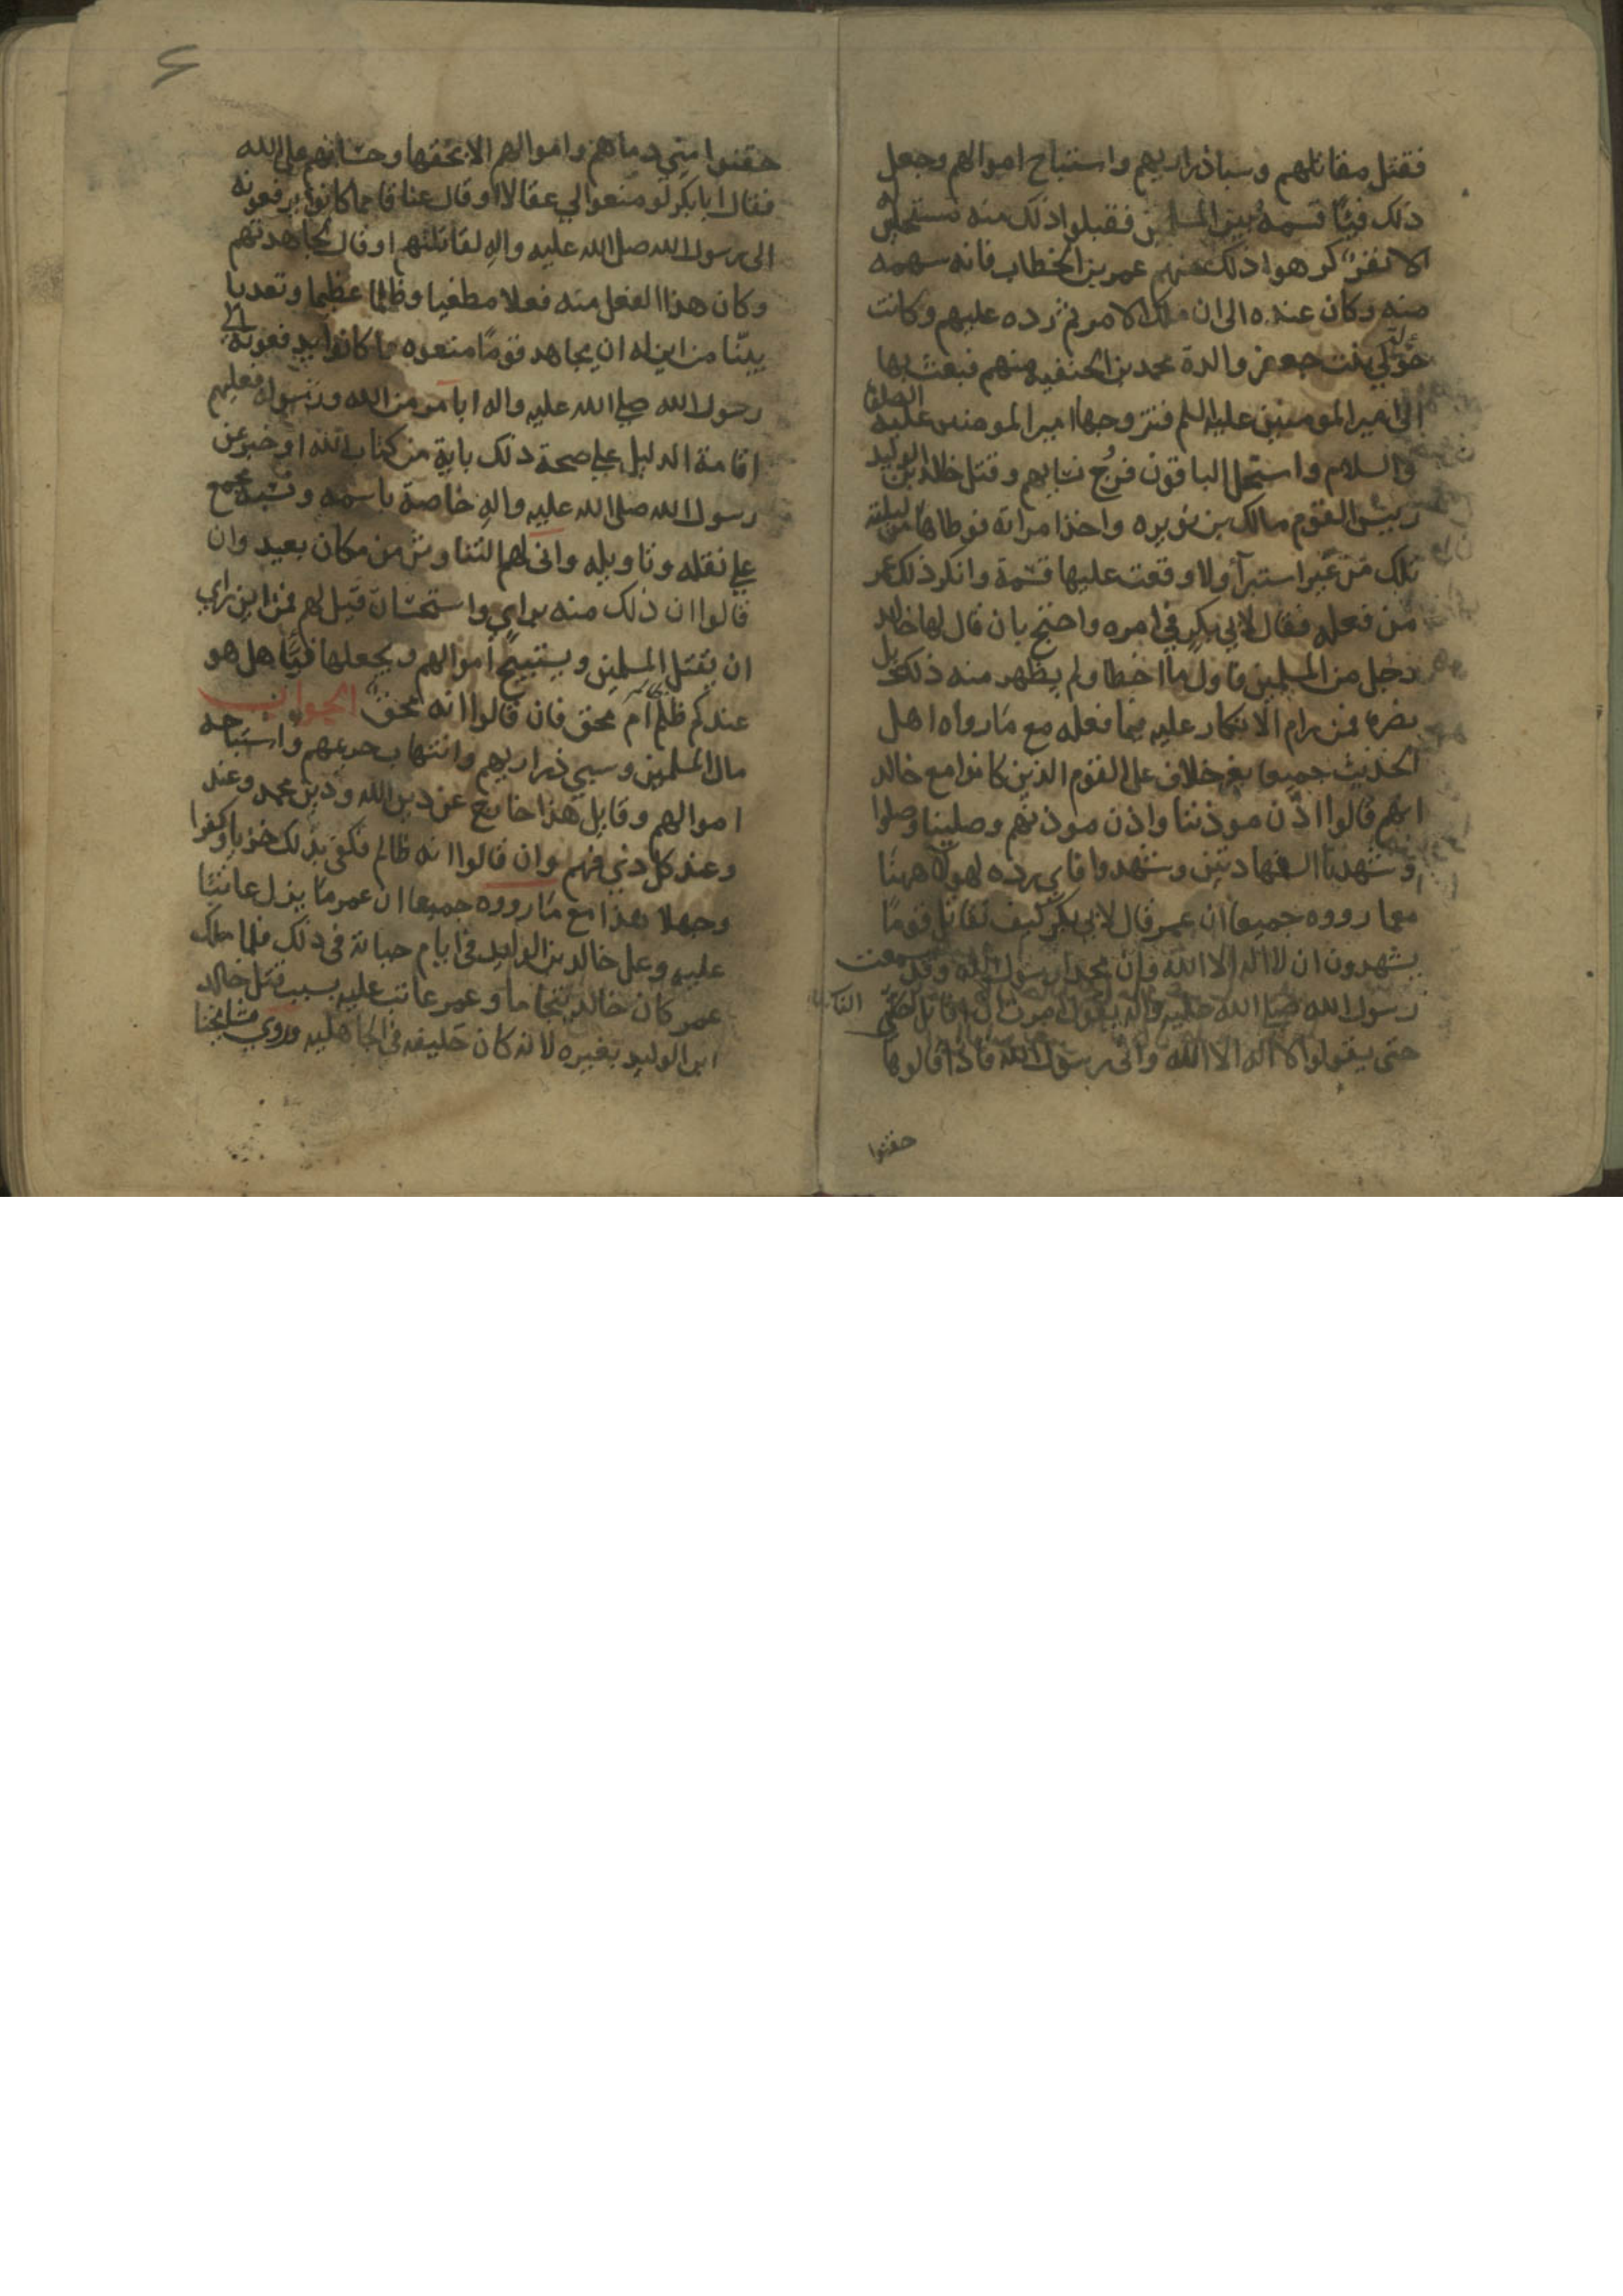 فقتل مقاتلهم وسبا ذراريهم واستباح اموالهم وجعل
ذلك فيئًا قسمه بين المسلمين فقبلوا ذلك منه مستحلين
الا نفرٌ كرهوا ذلك منهم عمر بن الخطاب فانه سهمه
منه وكان عنده الى ان ملك الامر ثم رده عليهم وكانت
خولة بنت جعفر والدة محمد بن الحنفيه منهم فبعث بها
الى امير المومنين عليه السلم فتزوجها امير المومنين عليه الصلوة
والسلام واستحل الباقون فرج نسايهم وقتل خالد بن الوليد
رييس القوم مالك بن نويره واخذ امراته فوطاها من ليلته
تلك من غير استبرآ ولا وقعت عليها قسمة وانكر ذلك عمر
من فعله فقال لابي بكر في امره واحتج بان قال لها خالد
رجل من المسلمين تاول ما اخطا ولم يظهر منه ذلك بل
نصره فمن رام الانكار عليه فيما فعله مع ما رواه اهل
الحديث جميعا بغير خلاف على القوم الذين كانوا مع خالد
انهم قالوا اذّن موذننا واذن موذنهم وصلينا وصلوا
وشهدنا الشهادتين وشهدوا فاي رده لهولا ههنا
معما رووه جميعا ان عمر قال لابي بكر كيف نقاتل قومًا
يشهدون ان لا اله الا الله وان محمدا رسول الله وقد سمعت
رسول الله صلى الله عليه واله يقول امرت ان اقاتل الناس
حتى يقولوا لا اله الا الله واني رسول الله فاذا قالوها
حقنوا
حقنوا مني دماهم واموالهم الا بحقها وحسابهم على الله
فقال ابا بكر لو منعوا لي عقالا او قال عناقا مما كانوا يرفعونه
الى رسول الله صلى الله عليه واله لقاتلتهم او قال لجاهدتهم
وكان هذا الفعل منه فعلا مطغيا وظلما عظيما وتعديا
بيّنا من اين له ان يجاهد قومًا منعوه ما كانوا يدفعونه الى
رسول الله صلى الله عليه واله ابامر من الله ورسوله فعليهم
اقامة الدليل على صحة ذلك باية من كتاب الله او خبر عن
رسول الله صلى الله عليه واله خاصة باسمه ونسبه مجمع
على نقله وتاويله وانى لهم التناوش من مكان بعيد وان
قالوا ان ذلك منه براي واستحسان قيل لهم فمن اين راي
ان يقتل المسلمين ويستبيح اموالهم ويجعلها فيًا هل هو
عندكم ظلم ام محق فان قالوا انه محق الجواب
مال المسلمين وسبي ذراريهم وانتهاب حريمهم واستباحه
اموالهم وقايل هذا خارج عن دين الله ودين محمد وعند
وعند كل ذي فهم وان قالوا انه ظالم فكفى بذلك خزيا وكفرا
وجهلا هذا مع ما رووه جميعا ان عمر ما يزل عاتبًا
عليه وعلى خالد بن الوليد في ايام حياته في ذلك فلما ملك
عمر كان خالد يتحاما وعمر عاتب عليه بسبب قتل خالد
ابن الوليد بغيره لانه كان حليفه في الجاهليه وروي مشايخنا